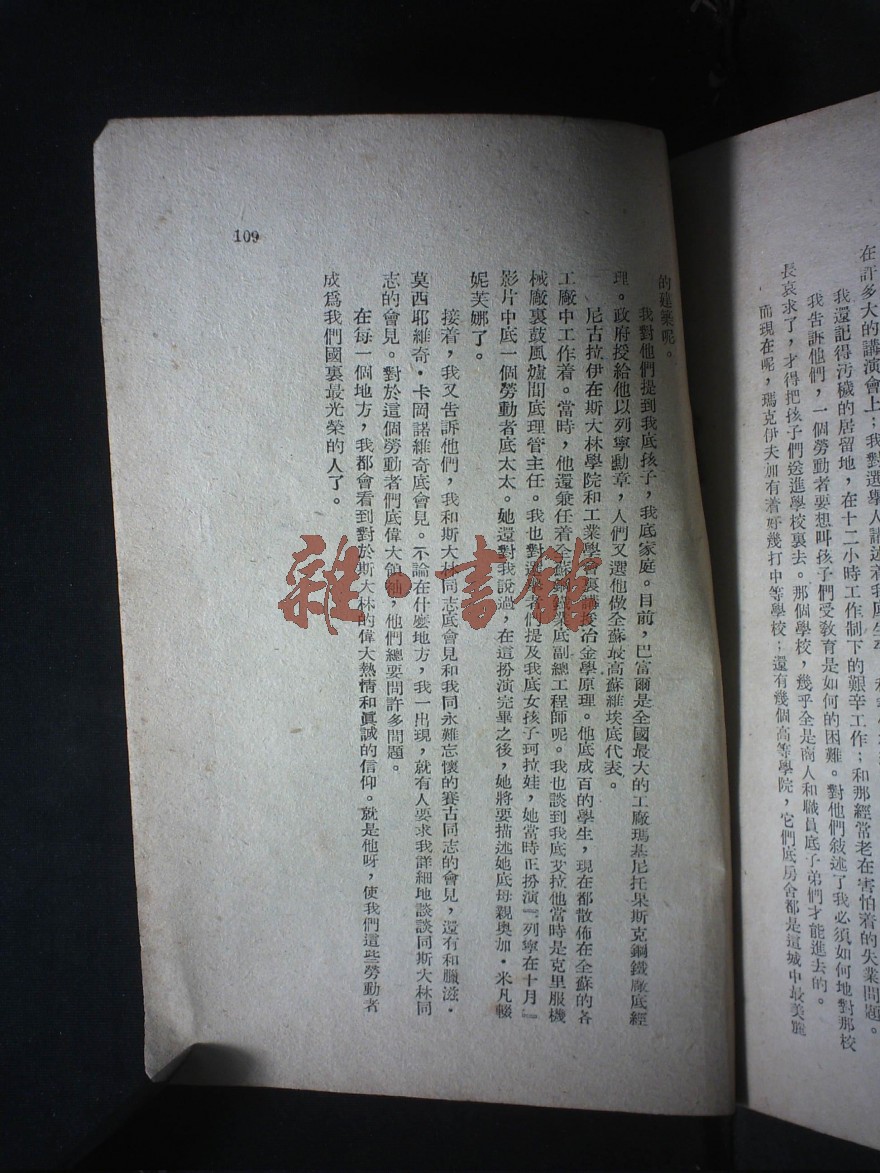 在許多大的講演會上；我對選舉人講述着我底生
我還記得汚穢的居留地，在十二小時工作制下的艱辛工作；和那經常老在害怕着的失業問題。
我告訴他們，一個勞動者要想叫孩子們受敎育是如何的困難。對他們敍述了我必須如何地對那校
長哀求了，才得把孩子們送進學校裏去。那個學校，幾乎全是商人和職員底子弟們才能進去的。
而現在呢，瑪克伊夫加有着好幾打中等學校；還有幾個高等學院，它們底房舍都是這城中最美麗
的建築呢。
我對他們提到我底孩子，我底家庭。目前，巴富爾是全國最大的工廠瑪基尼托果斯克鋼鐵廠底經
理。政府授給他以列寧勳章，人們又選他做全蘇最高蘇維埃底代表。
尼古拉伊在斯大林學院和工業學會裏講授冶金學原理。他底成百的學生，現在都散佈在全蘇的各
工廠中工作着。當時，他還兼任着全蘇鋼鐵業底副總工程師呢。我也談到我底艾拉他當時是克里服機
械廠裏鼓風爐間底理管主任。我也對選舉者們提及我底女孩子珂拉娃，她當時正扮演『列寧在十月』
影片中底一個勞動者底太太。她還對我說過，在這扮演完畢之後，她將要描述她底母親奧加·米凡輟
妮芙娜了。
接着，我又告訴他們，我和斯大林同志底會見和我同永難忘懷的賽古同志的會見，還有和臘滋·
莫西耶維奇·卡岡諾維奇底會見。不論在什麼地方，我一出現，就有人要求我詳細地談談同斯大林同
志的會見。對於這個勞動者們底偉大領袖，他們總要問許多問題。
在每一個地方，我都會看到對於斯大林的偉大熱情和眞誠的信仰。就是他呀，使我們這些勞動者
成爲我們國裏最光榮的人了。
109
雜·書館